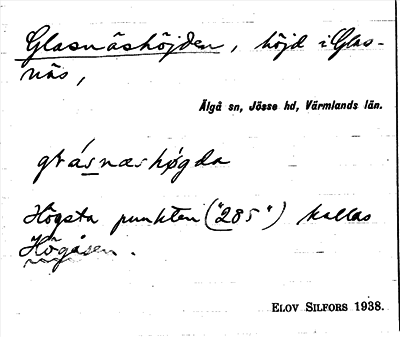 Glasnäshöjden, höjd i Glas-
näs,
Älgå sn, Jösse hd, Värmlands län.
glásnæshøgda
Högsta punkten ("285") kallas
Högåsen.
ELOV SILFORS 1938.